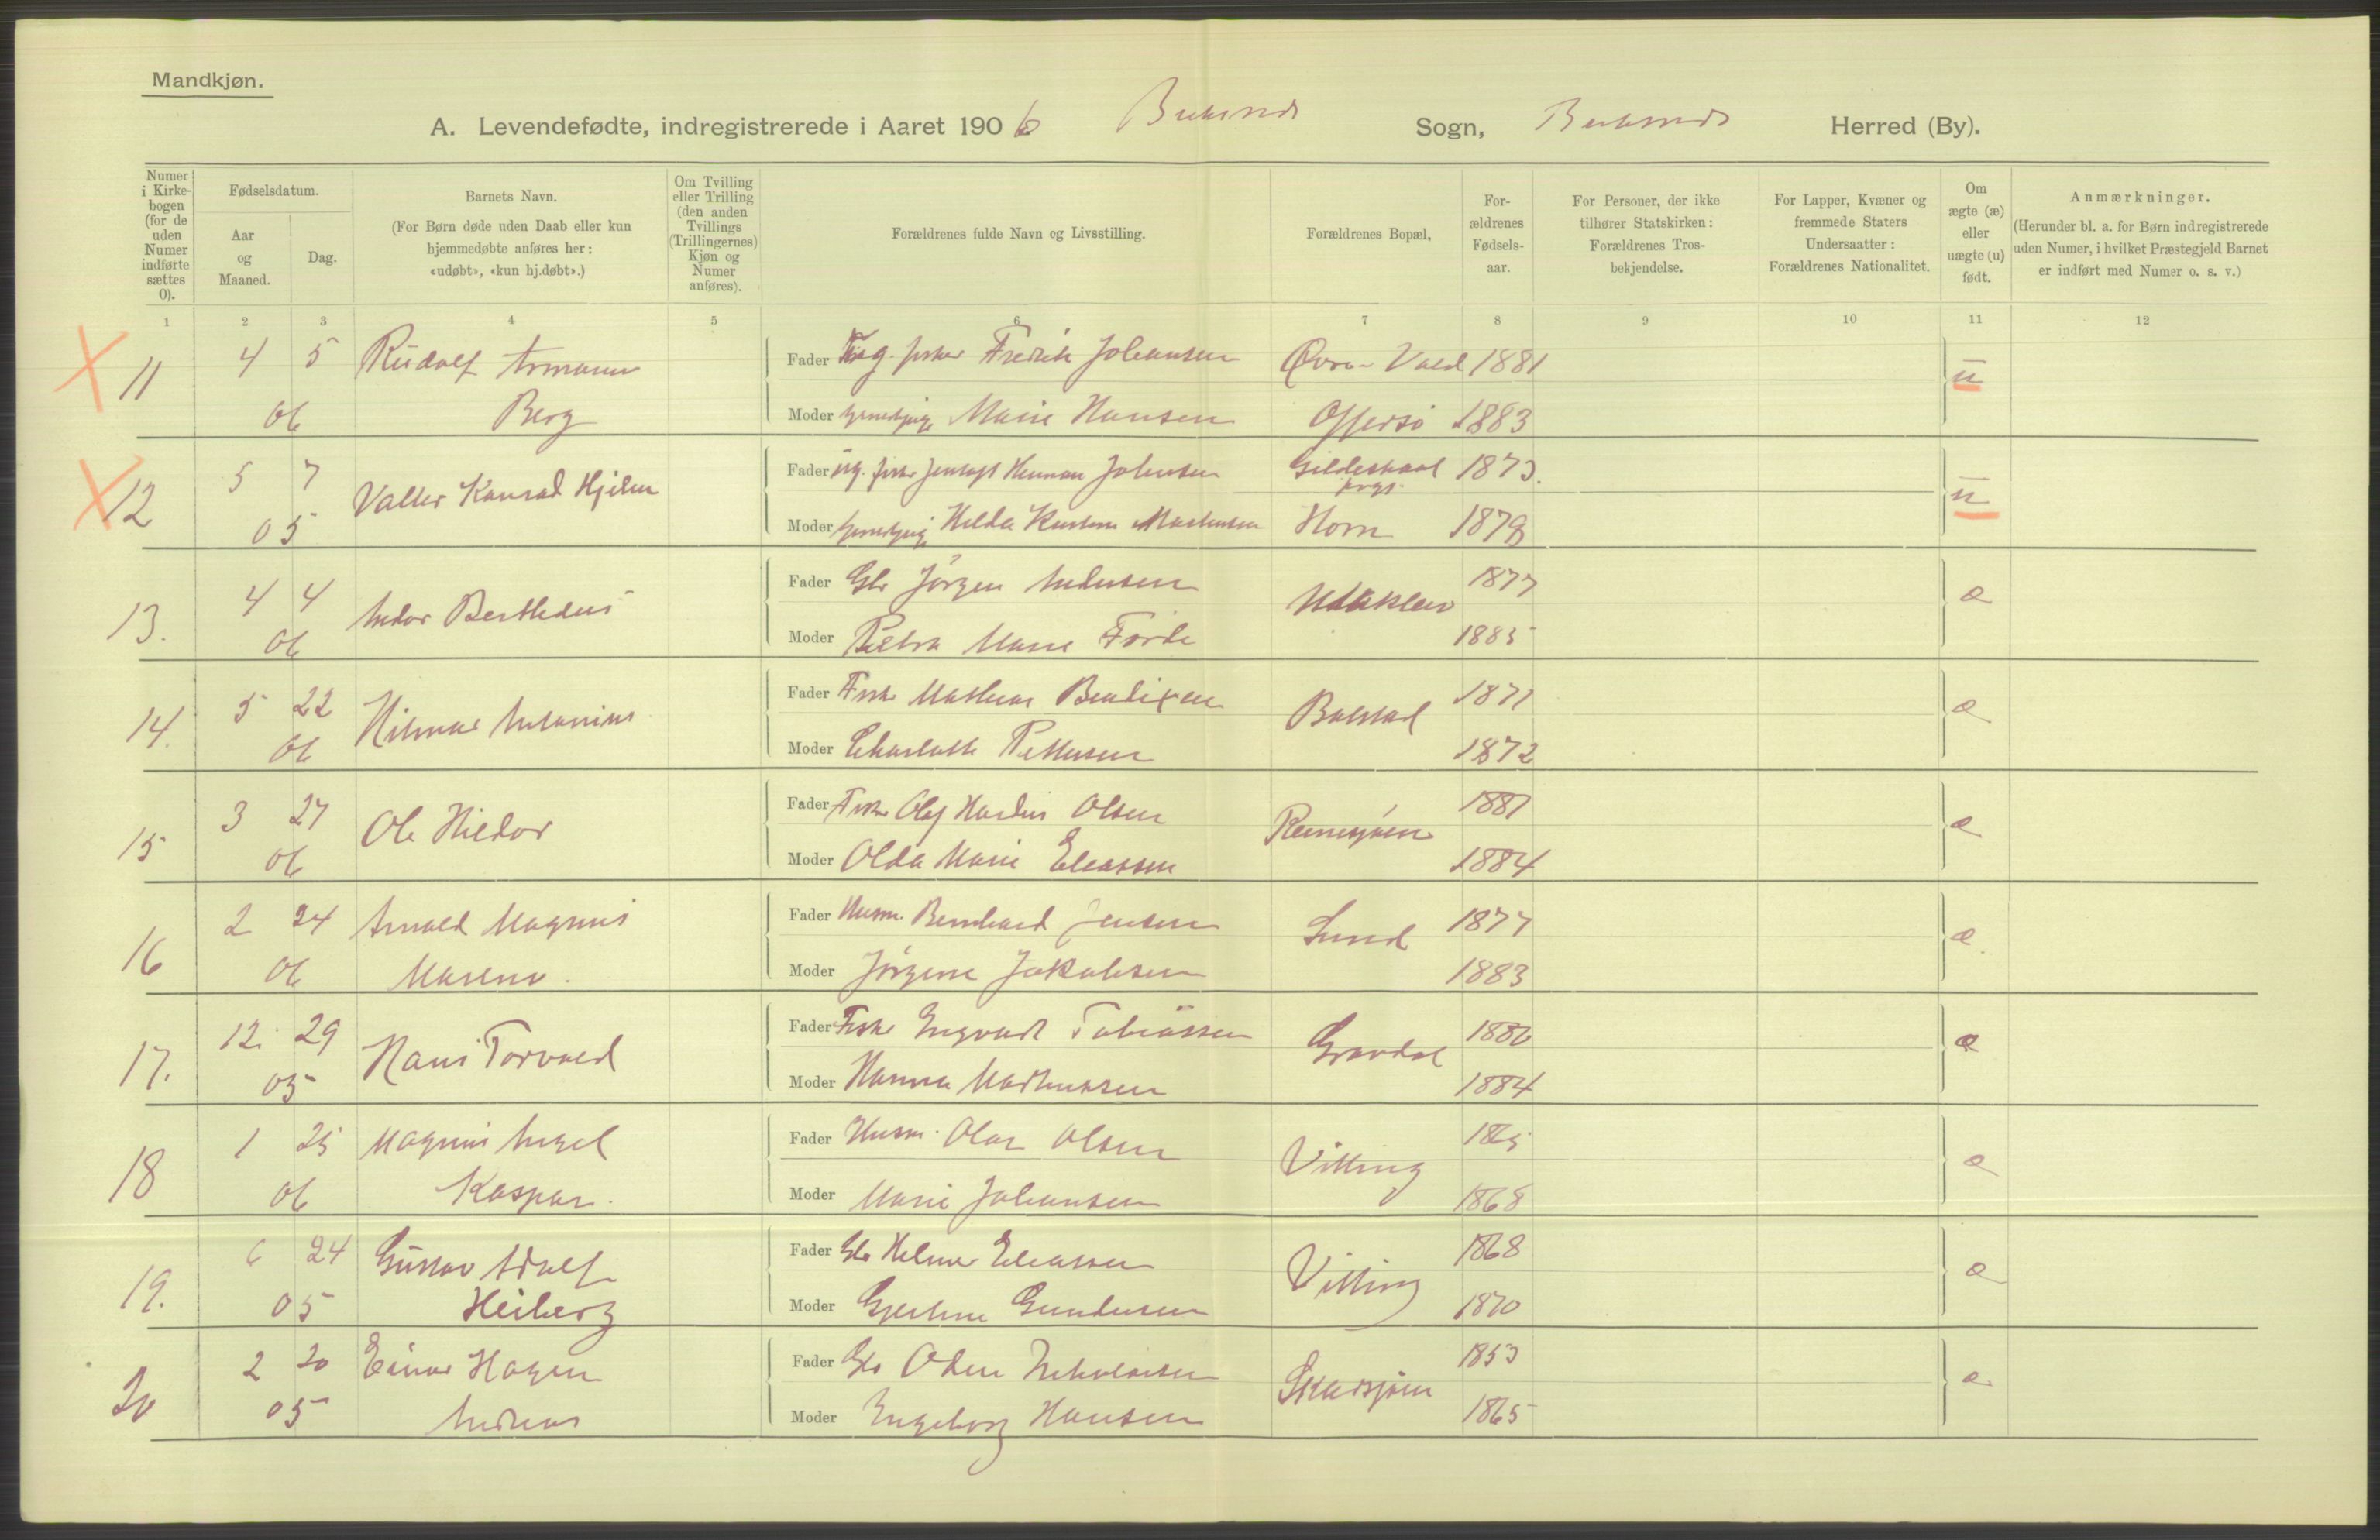 Mandkjøn.
A. Levendefødte, indregistrerede i Aaret 1906 Buksnes Sogn, Buksnes Herred (By).
Numer i Kirkebogen (for de uden Numer indførte sættes 0).
Fødselsdatum.
Aar og Maaned.
Dag.
Barnets Navn.
(For Børn døde uden Daab eller kun hjemmedøbte anføres her: «udøbt», «kun hj.døbt».)
Om Tvilling eller Trilling (den anden Tvillings (Trillingernes) Kjøn og Numer anføres).
Forældrenes fulde Navn og Livsstilling.
Forældrenes Bopæl,
Forældrenes Fødselsaar.
For Personer, der ikke tilhører Statskirken: Forældrenes Trosbekjendelse.
For Lapper, Kvæner og fremmede Staters Undersaatter: Forældrenes Nationalitet.
Om ægte (æ) eller uægte (u) født.
Anmærkninger.
(Herunder bl. a. for Børn indregistrerede uden Numer, i hvilket Præstegjeld Barnet er indført med Numer o. s. v.)
1 2 3 4 5 6 7 8 9 10 11 12
11 4 5 Rudolf Armann Fader Ug. fisker Fredrik Johansen 1881 u
06 Berg Moder Marie Hansen Offersö 1883
12 5 7 Valter Konrad Hjelm Fader ug. fisker Herman Johansen Gildeskaal prgj. 1873. u
05 Moder Hilda Martinsen Horn 1879
13. 4 4 Andor Berthedius Fader Gbr Jörgen Andersen Udakleiv 1877 æ
06 Moder Petra Marie 1885
14. 5 22 Hilmar Antonius Fader Fisker Mathias Bendixen Balstad 1871 æ
06 Moder Charlotte Pettersen 1872
15 3 27 Ole Hildor Fader Fisker Olaf Olsen 1881 æ
06 Moder Olda Marie Eleassen 1884
16 2 24 Arnold Magnus Fader Husm. Bernhard Jensen Sund 1877 æ
06 Moder Jörgine Jakobsen 1883
17. 12 29 Hans Torvald Fader Fisker Ingvart Tobiassen Gravdal 1880 æ
05 Moder Hanna Mathiassen 1884
18 1 25 Magnus Angel Fader Husm. Olar Olsen Vitting 1865 æ
06 Kaspar Moder Marie Johansen 1868
19. 6 24 Gustav Adolf Fader Gbr Helmer Eleassen Vitting 1868 æ
05 Heiberg Moder Gjertine Gundersen 1870
20 2 20 Einar Hagen Fader Gbr Odin Nikolaisen Skarsjöen 1853 æ
05 Andreas Moder Engeborg Hansen 1865